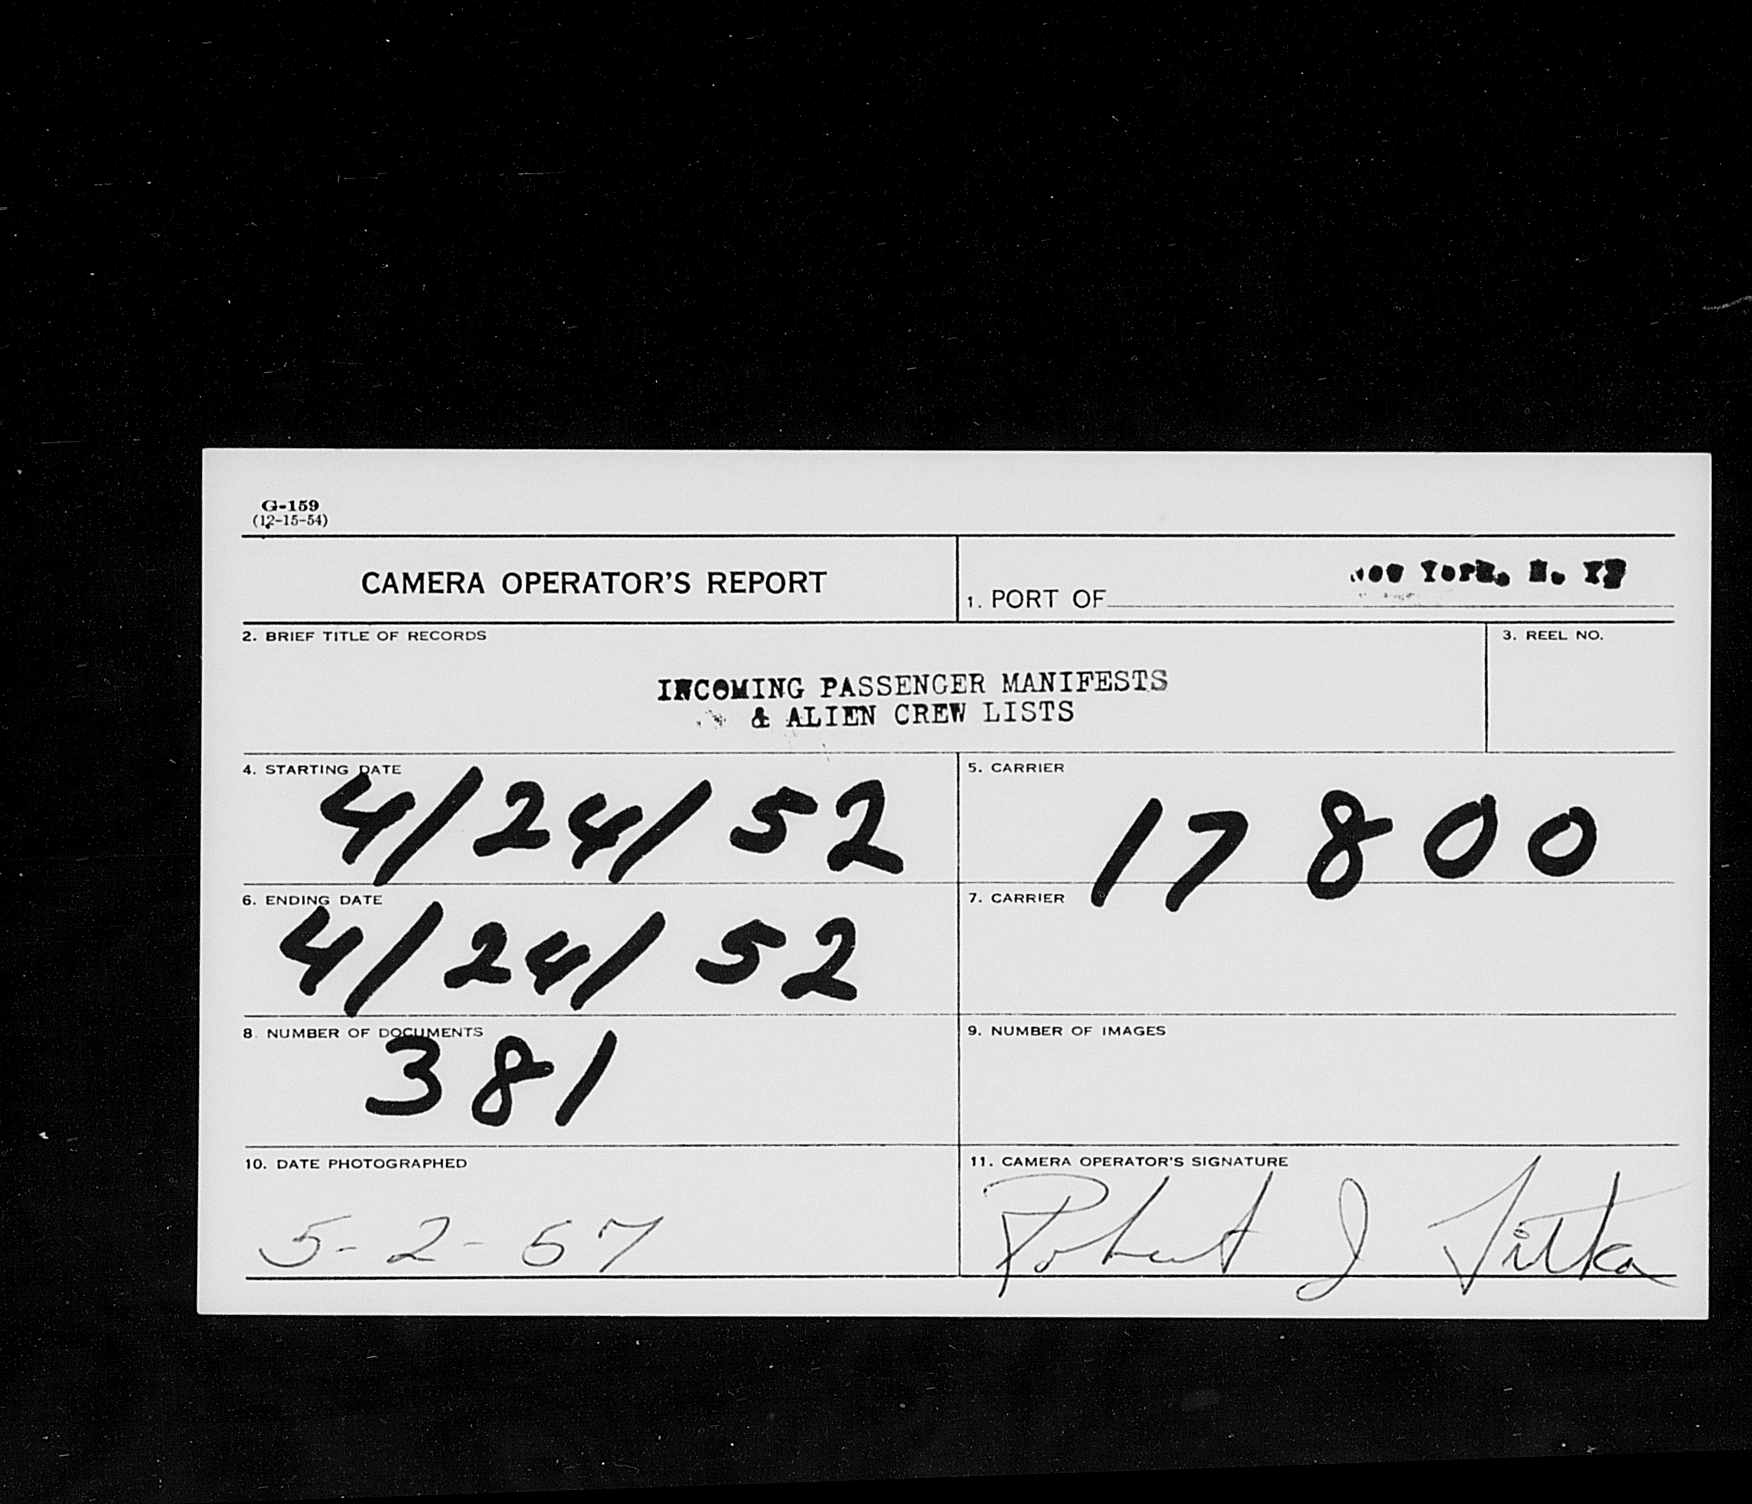 G-159
(12-15-54)
CAMERA OPERATOR'S REPORT
1. PORT OF New York, N. Y.
2. BRIEF TITLE OF RECORDS
3. REEL NO.
INCOMING PASSENGER MANIFESTS
& ALIEN CREW LISTS
4. STARTING DATE
4/24/52
5. CARRIER
17800
6. ENDING DATE
4/24/52
7. CARRIER
8. NUMBER OF DOCUMENTS
381
9. NUMBER OF IMAGES
10. DATE PHOTOGRAPHED
5-2-57
11. CAMERA OPERATOR'S SIGNATURE
Robert J